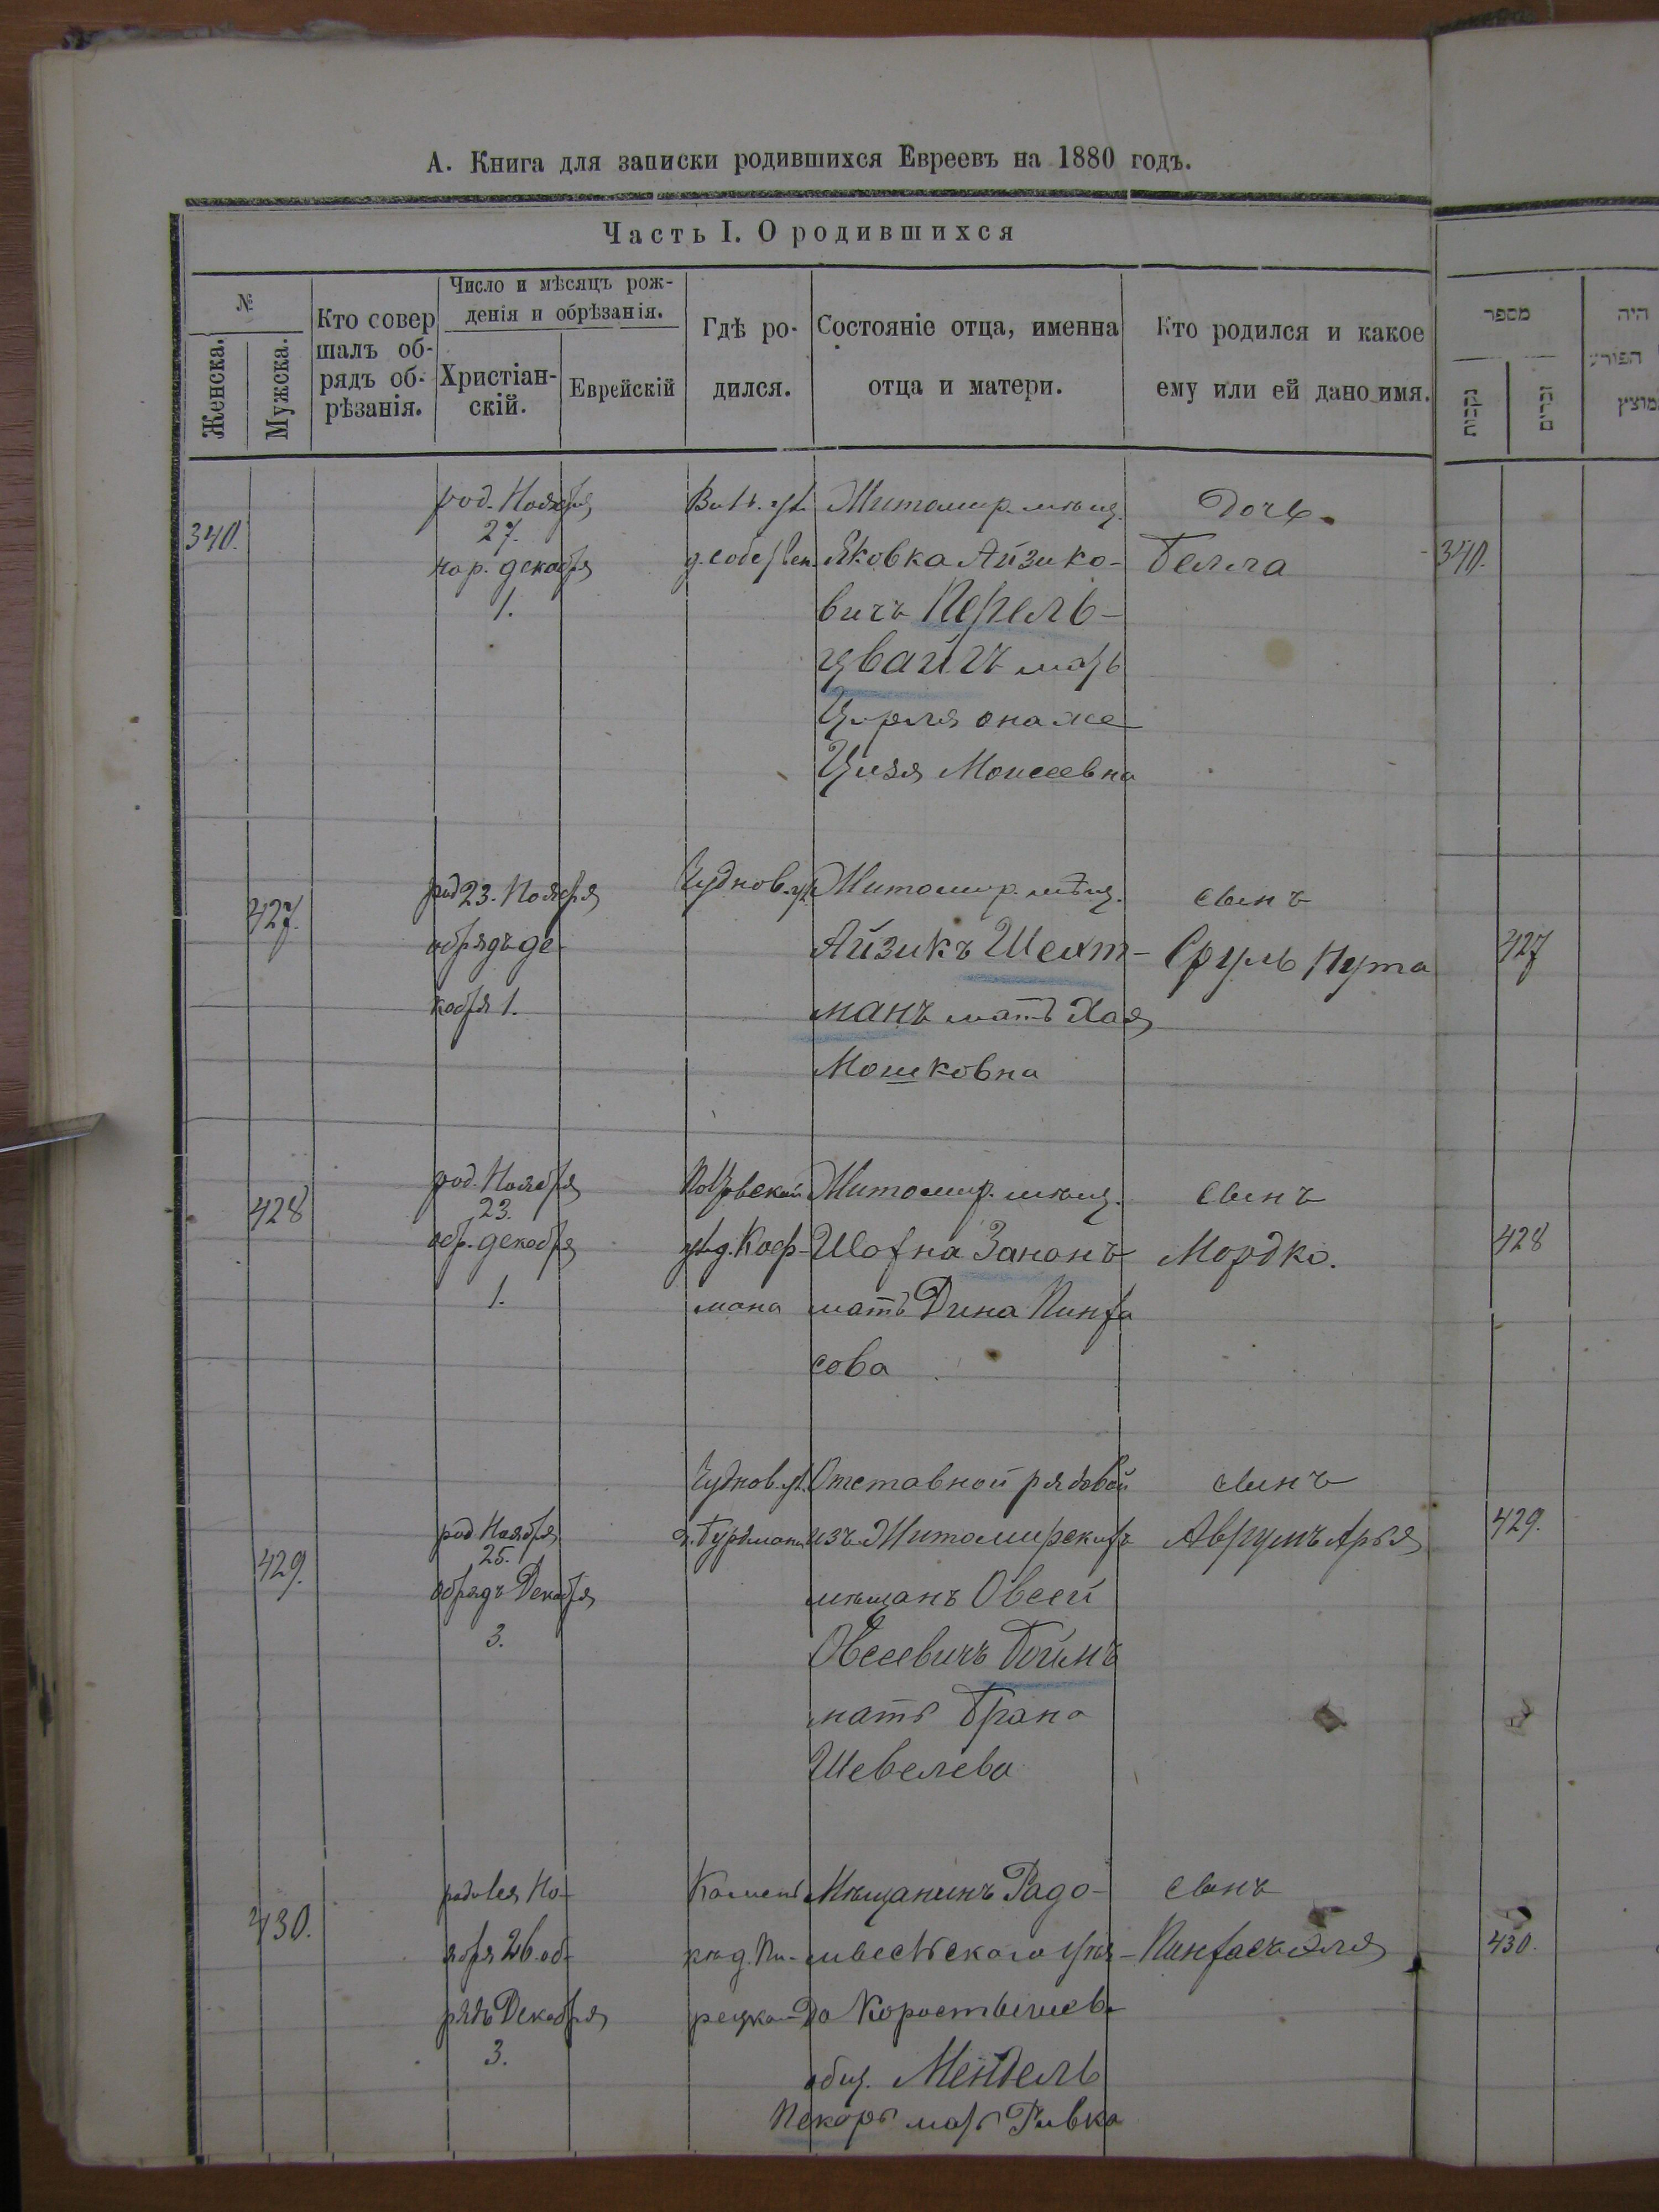 А. Книга для записки родившихся Евреевъ на 1880 годъ.
Часть I. О родившихся
№
Женска.
Мужска.
Кто совер
шалъ об-
рядъ об-
рѣзанія.
Число и мѣсяцъ рож-
денія и обрѣзанія.
Христіан-
скій.
Еврейскій
Гдѣ ро-
дился.
Состояніе отца, именна
отца и матери.
Кто родился и какое
ему или ей дано имя.
מספר
נקבות
זכרים
היה
הפורע
340.
род. Ноября
27.
нар. декабря
1.
д. собствен.
Житомир. мѣщ.
Яковка Айзико-
вичъ Перель-
цвайгъ мать
Цирля она же
Цизя Моисеевна
Дочь
Белла
340.
427.
род 23. Ноября
обрядъ де-
кабря 1.
Чуднов. ул.
Житомир. мѣщ.
Айзикъ Шехт-
манъ мать Хая
Мошковна
сынъ
Сруль Нута
427
428
род. Ноября
23.
обр. декабря
1.
ул. д. Коф-
мана
Житомир. мѣщ.
Шофна Законъ
мать Дина Пинха
сова
сынъ
Мордко.
428
429.
род Ноября
25.
обрядъ Декабря
3.
Чуднов. ул.
д. Гурдмана
Отставной рядовой
изъ Житомирскихъ
мѣщанъ Овсей
Овсеевичъ Боймъ
мать Брана
Шевелева
сынъ
Аврумъ Арья
429.
430.
родился Но-
ября 26. об-
рядъ Декабря
3.
Мѣщанинъ Радо-
мысльскаго уѣз-
да Коростышев.
общ. Мендель
Пекарь мать Ривка
сынъ
Пинхасъ Эля
430.